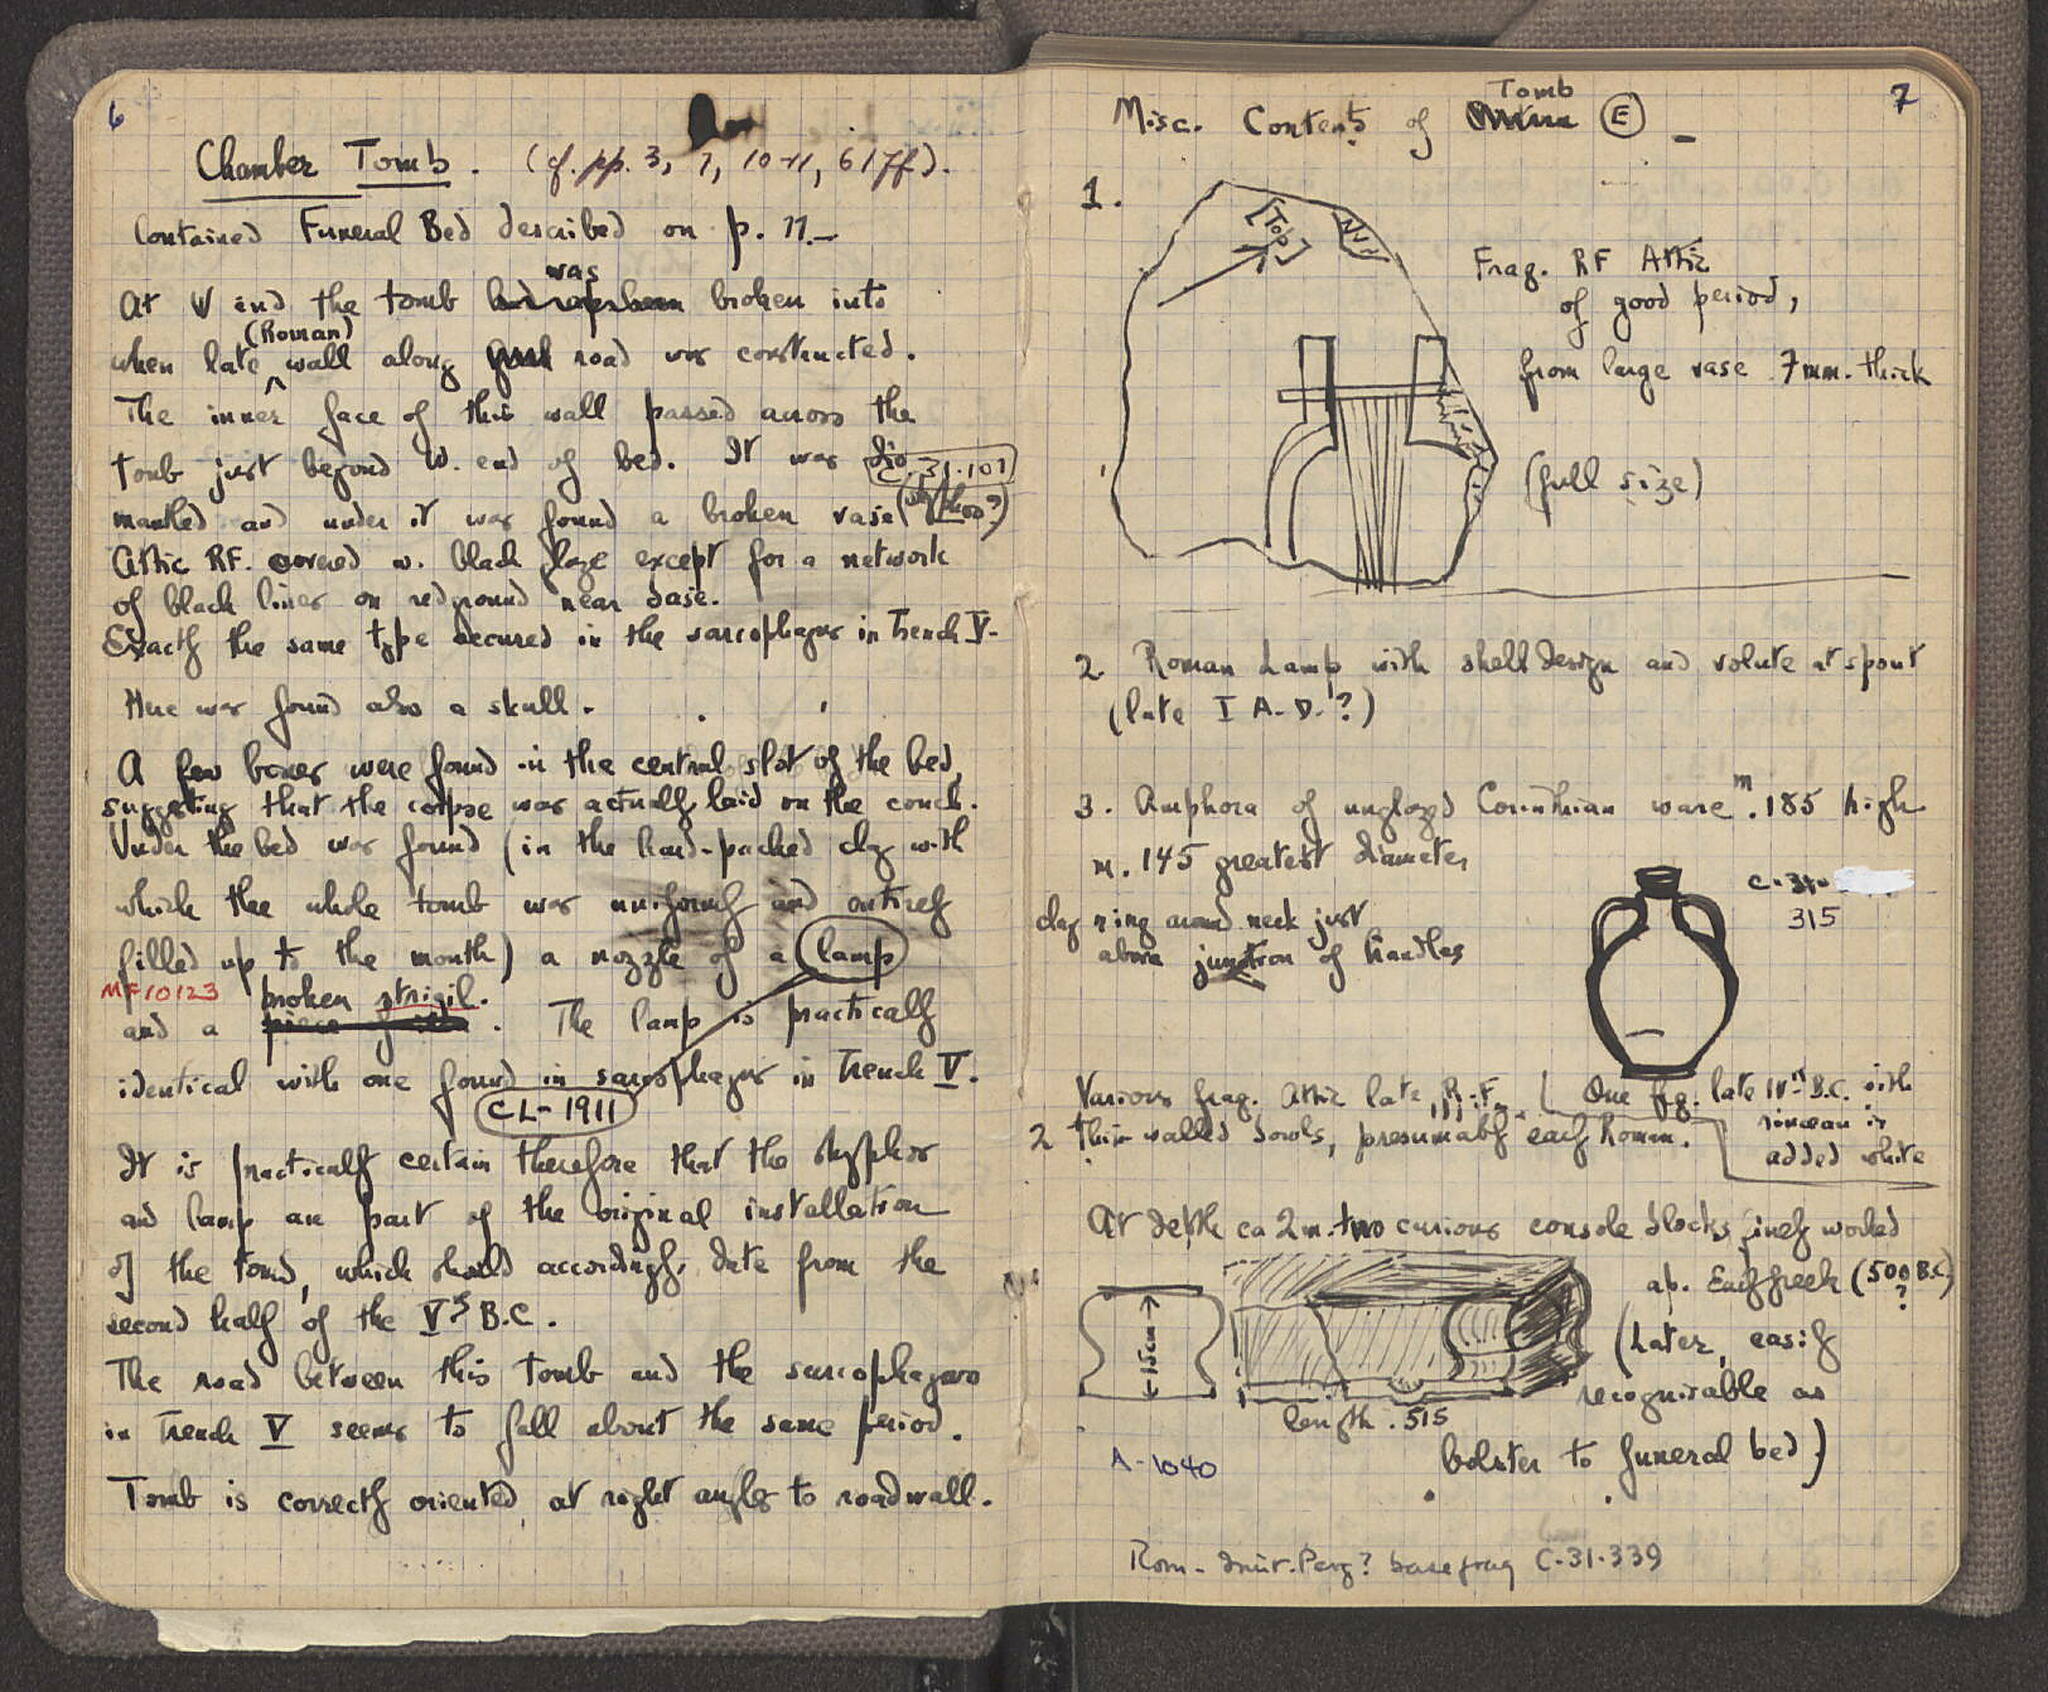 6
Chamber Tomb. (cf. pp. 3, 7, 10-11, 61ff).
Contained Funeral Bed described on p. 11.—
At W end the tomb was broken into
when late (Roman) wall along road was constructed.
The inner face of this wall passed across the
tomb just beyond W. end of bed. It was dis
C-31-107
mantled and under it was found a broken vase
Attic RF. covered w. black glaze except for a network
of black lines on red ground near base.
Exactly the same type occured in the sarcophagus in Trench V-
Here was found also a skull.
A few bones were found in the central slot of the bed,
suggesting that the corpse was actually laid on the couch.
Under the bed was found (in the hard-packed clay with
which the whole tomb was uniformly and entirely
filled up to the mouth) a nozzle of a lamp
MF10123 broken strigil.
and a . The lamp is practically
identical with one found in sarcophagus in Trench V.
CL-1911
It is practically certain therefore that the skyphos
and lamp are part of the original installation
of the tomb, which should accordingly date from the
second half of the Vth B.C.
The road between this tomb and the sarcophagus
in Trench V seems to fall about the same period.
Tomb is correctly oriented, at right angles to roadwall.
7
Misc. Contents of Tomb E —
1.
[Top]
Frag. RF Attic
of good period,
from large vase 7mm. thick
(full size)
2. Roman Lamp with shell design and volute at spout
(late I A.D.?)
3. Amphora of unglazed Corinthian ware m .185 high
m. 145 greatest diameter
clay ring around neck just
above junction of handles
C-31-
315
Various frag. Attic late R.F.
One fg. late IVth B.C. with
rinceau in
added white
2 thin walled bowls, presumably early Roman.
At depth ca 2m. two curious console blocks finely worked
ap. Early Greek (500 B.C.
?
15cm
length .515
(Later, easily
recognizable as
bolster to funeral bed)
A-1040
Rom- Perg? base frag C-31-339